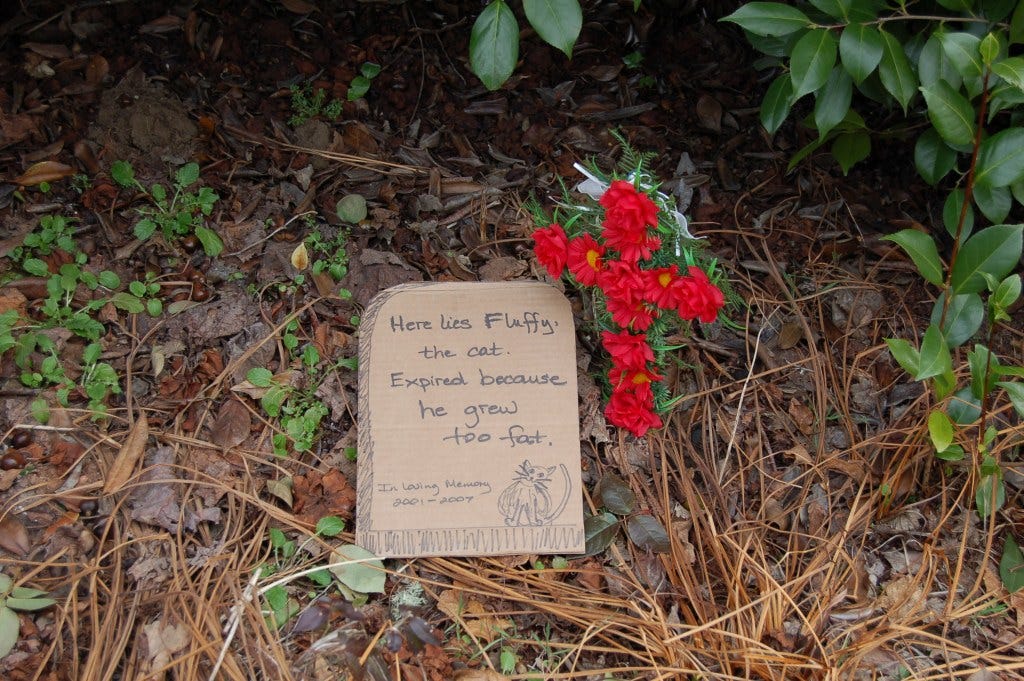 Here lies Fluffy,
the cat.
Expired because
he grew
too fat.
In Loving Memory
2001-2007